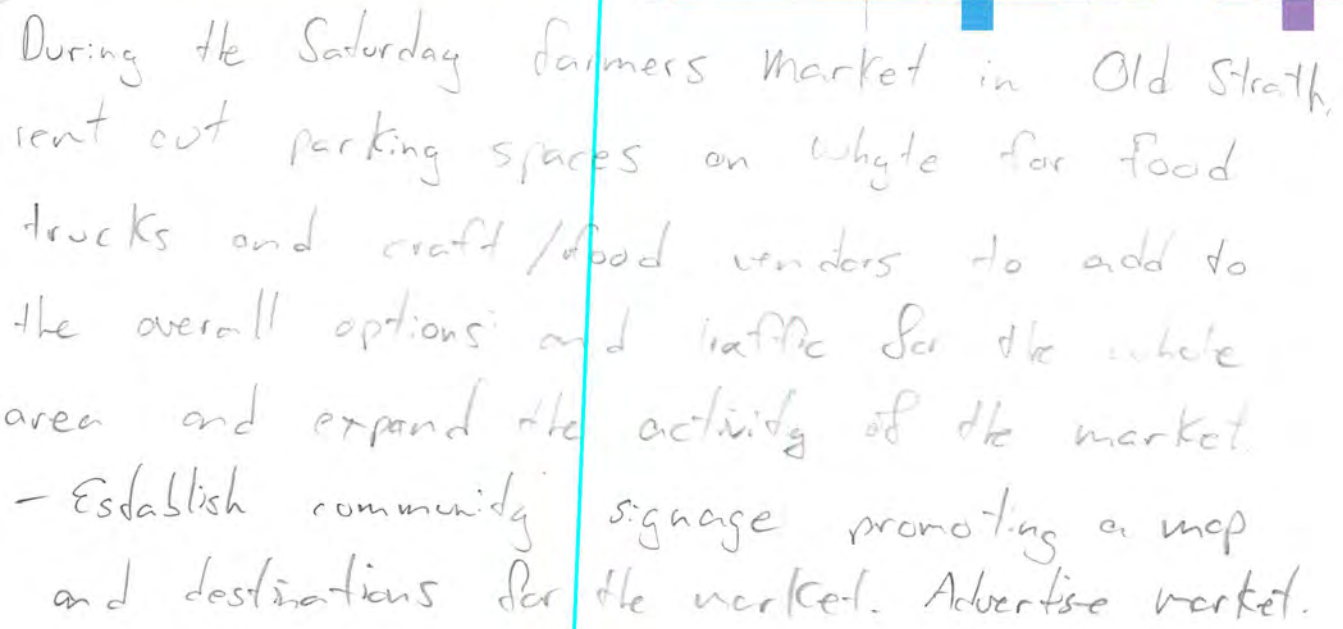 During the Saturday farmers market in Old Strath,
rent out parking spaces on whyte for food
trucks and craft/food vendors to add to
the overall options and traffic for the whole
area and expand the activity of the market.
- Establish community signage promoting a map
and destinations for the market. Advertise market.